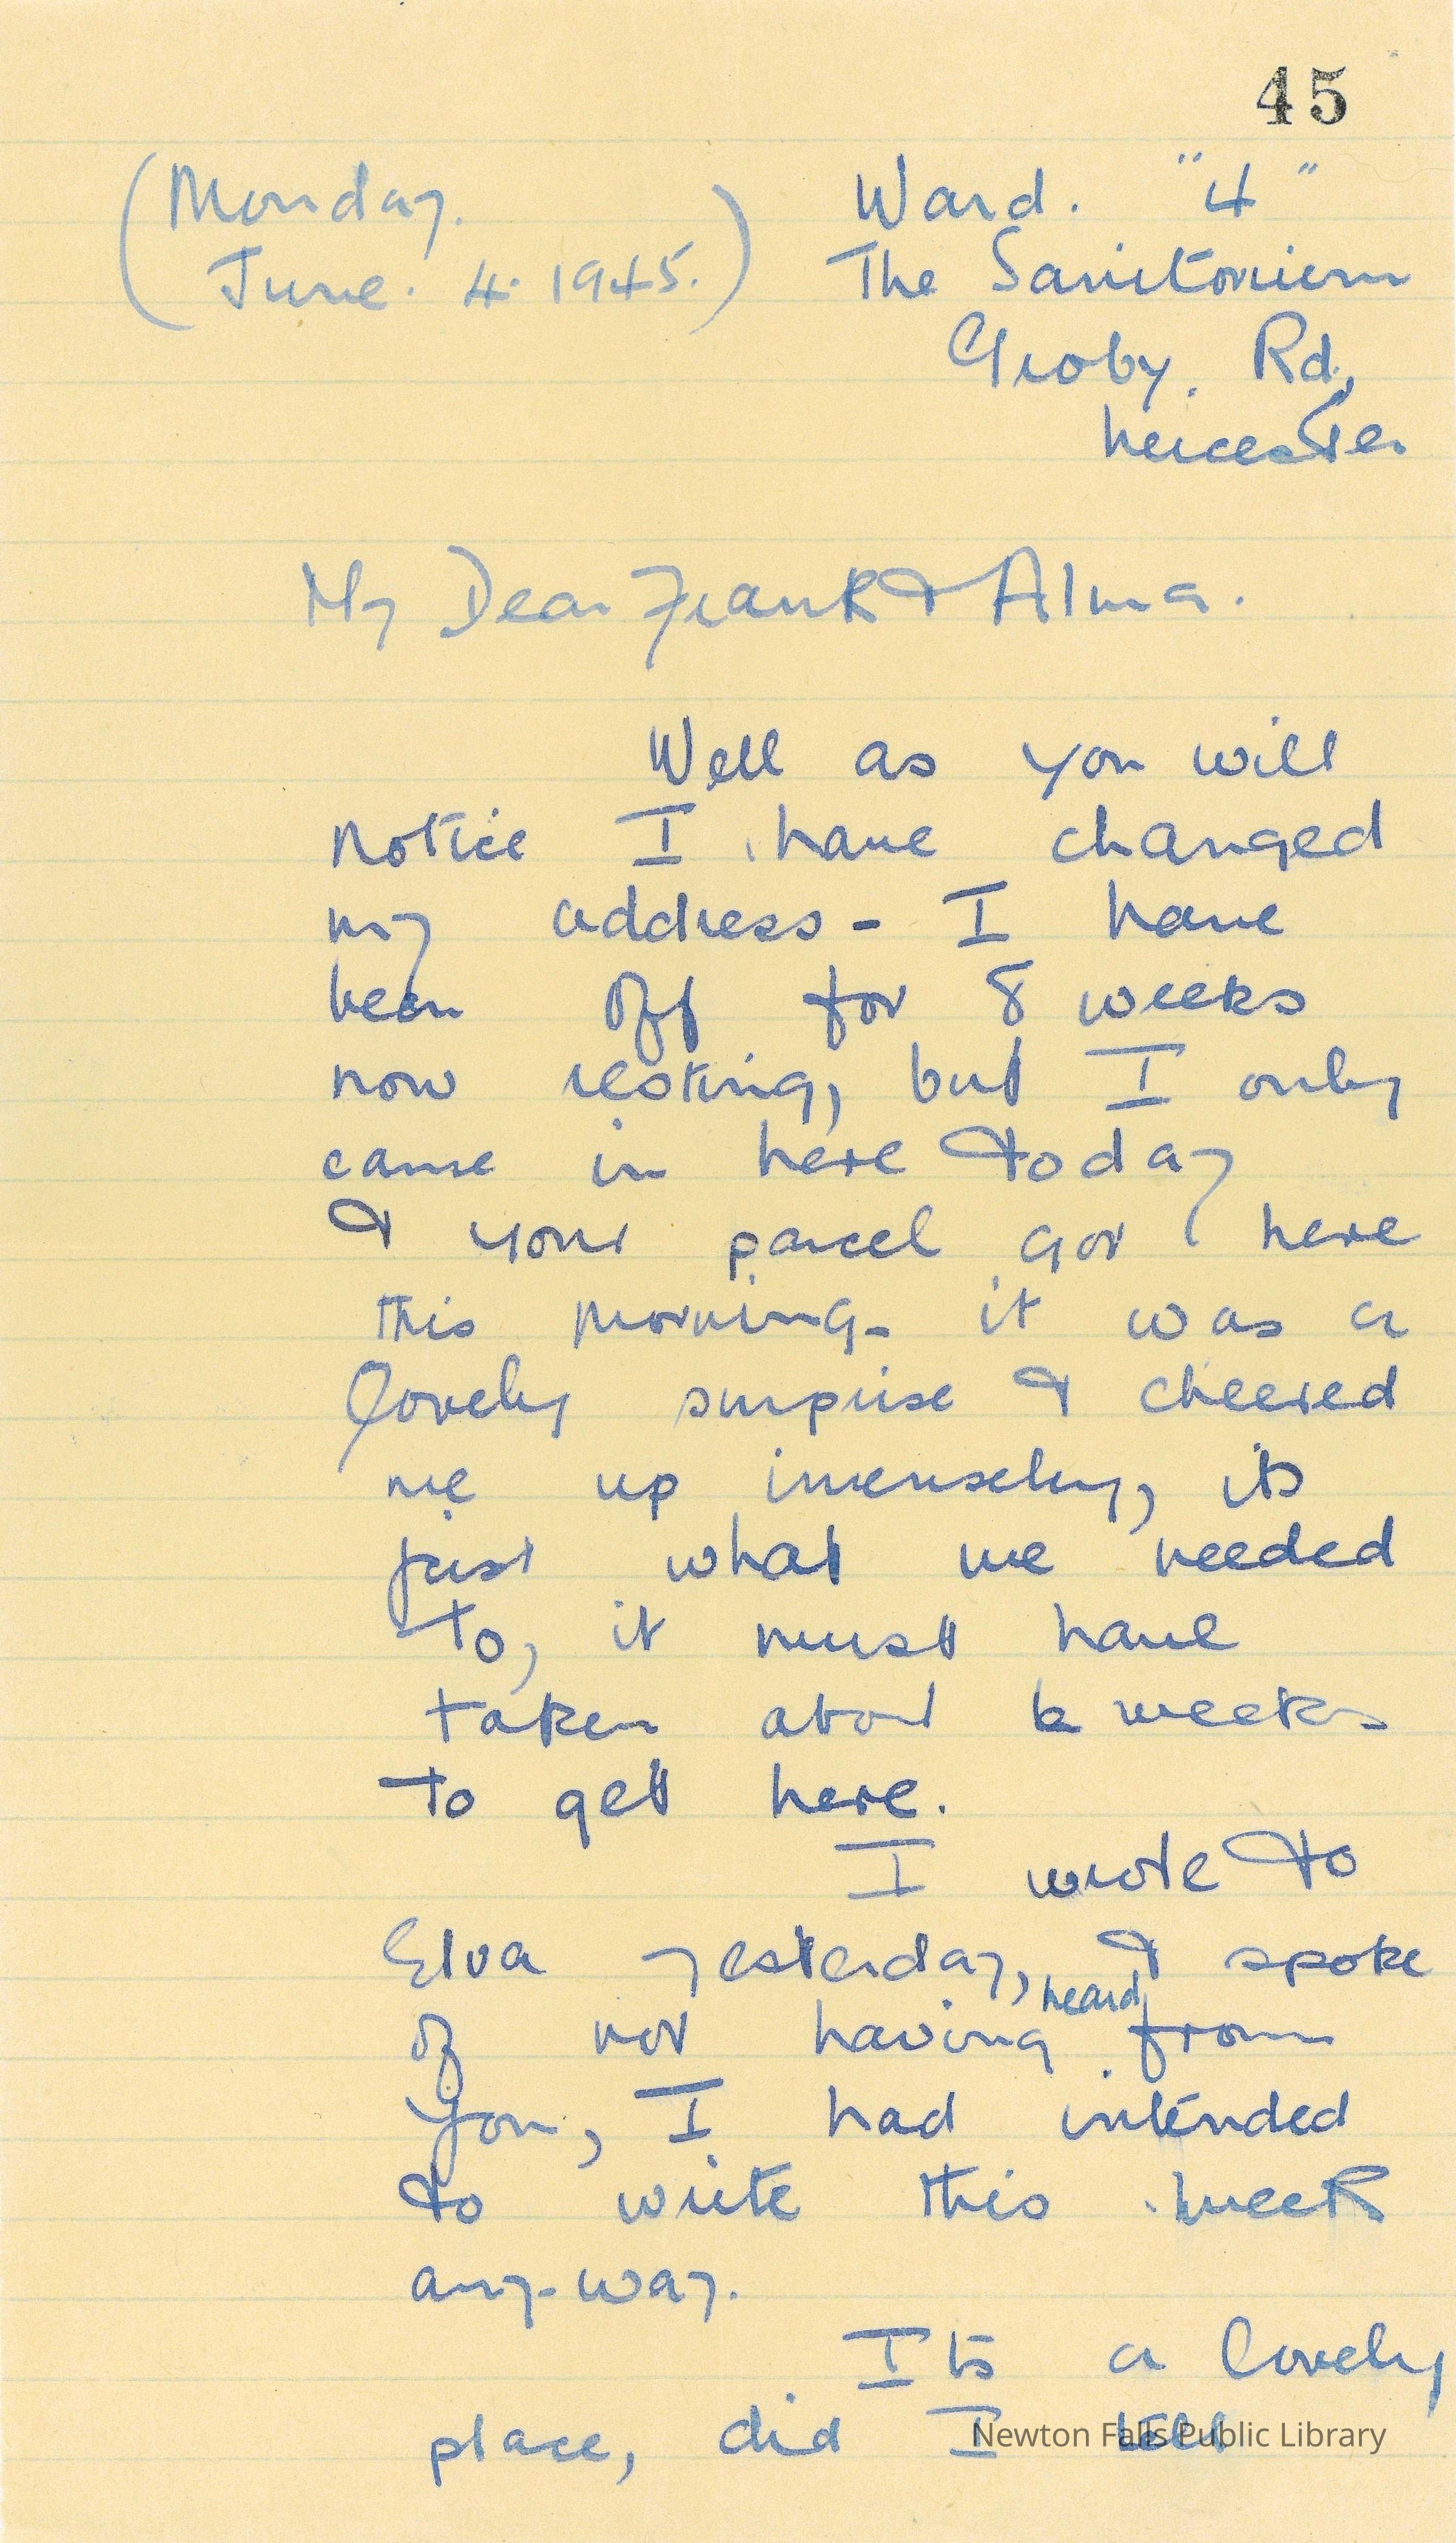 45
(Monday.
June. 4. 1945.)
Ward. "4"
The Sanitorium
Groby. Rd,
Leicester
My Dear Frank & Alma.
Well as you will
notice I have changed
my address - I have
been off for 8 weeks
now resting, but I only
came in here today
& your parcel got here
this morning - it was a
lovely surprise & cheered
me up imensely, its
just what we needed
to, it must have
taken about 6 weeks
to get here.
I wrote to
Elva yesterday, & spoke
of not having heard from
you, I had intended
to write this week
any-way.
Its a lovely
place, did I tell
Newton Falls Public Library